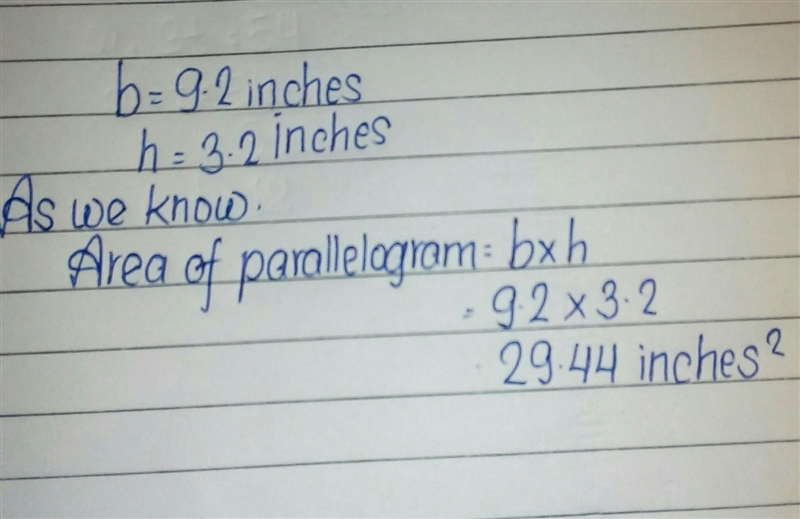 b = 9.2 inches
h = 3.2 inches
As we know.
Area of parallelogram = b×h
= 9.2 × 3.2
29.44 inches²